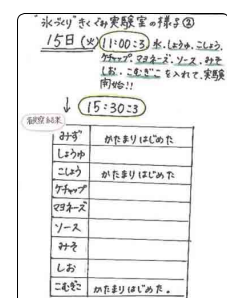 "氷づくり" きくぐみ実験室の様子②
15日(火) 11:00ころ 水、しょうゆ、こしょう、
ケチャップ、マヨネーズ、ソース、みそ
しお、こむぎこ を入れて、実験
開始!!
↓ 15:30ころ
観察結果
みず かたまりはじめた
しょうゆ
こしょう かたまりはじめた
ケチャップ
マヨネーズ
ソース
みそ
しお
こむぎこ かたまりはじめた。